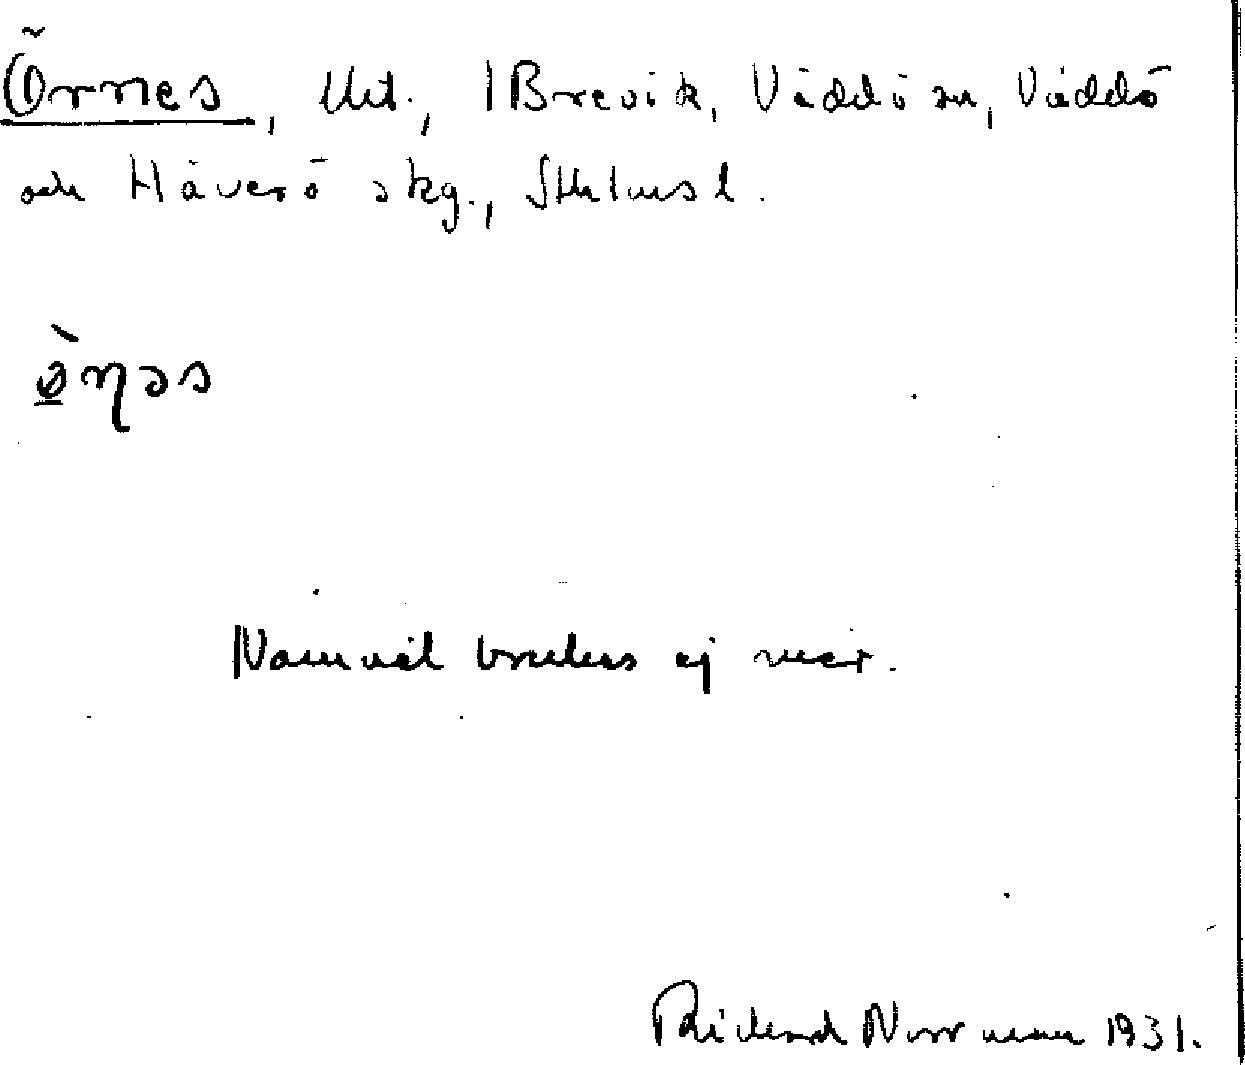 Örnes, Utt., 1 Brevik, Väddön, Väddö
och Häverö skg., Sthlms l.
ø̀ṇəs
Namnet brukas ej mer.
Rickard Norrman 1931.